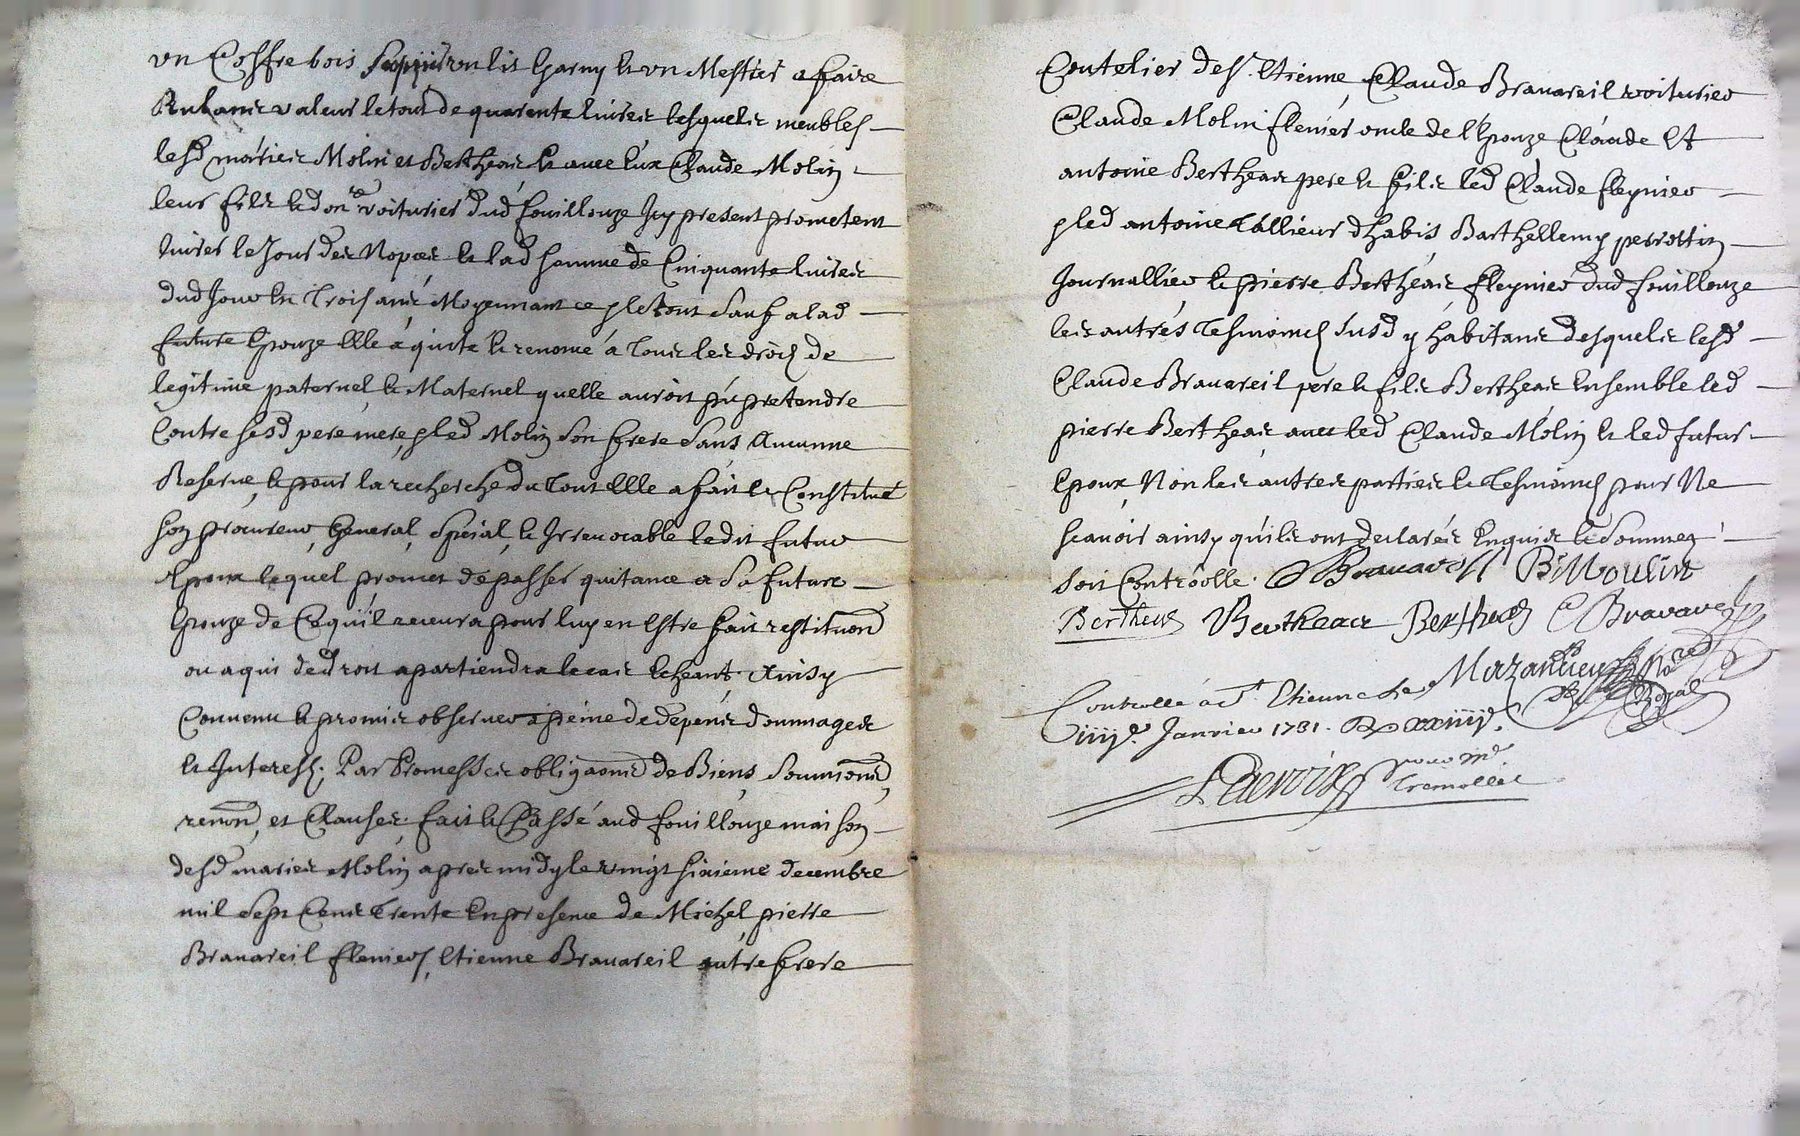 un Coffre bois Sappin un lit Garny & un Mestier a faire
Rubans valeur le tout de quarante livres lesquels meubles
lesd. mariés Molin et Bertheas & avec eux Claude Molin
leur fils led. voiturier dud fouillouze Icy present prometent
livrer le Jour des Nopces & lad somme de Cinquante livres
dud Jour en Trois anés Moyennant ce & le tout Sauf a lad
future Epouze Elle a quité & renoncé á Tous les droits de
legitime paternel, & Maternel quelle auroit pú pretendre
Contre sesd pere mere, & led Molin Son frere Sans Aucunne
Reserve, & pour la recherche du Tout Elle a fait & Constitué
son procureur, General, Special, & Irrevocable ledit futur
Epoux lequel promet de passer quitance a Sa future
Epouze de Ce quíl recevra pour luy en Estre fait restituon
ou a qui de droit apartiendra le cas Echeant. Ainsy
Convenu & promis observer a peine de depens dommages
& Interests; Par Promesses obligaons de Biens, Soumions,
renon, et Clauses: fait & Passé aud fouillouze maison
desd maries Molin apres midy le vingt sixieme decembre
mil Sept Cens Trente En presence de Michel, pierre
Bravareil flenier, Etienne Bravareil autre frere
Coutelier de St. Etienne, Claude Bravareil voiturier
Claude Molin flenier oncle de l'Epouze Claude Et
antoine Bertheas pere & fils led Claude fleynier
& led antoine Tallieur dhabis Barthellemy perrottin
Journallier & pierre Bertheas fleynier dud fouillouze
les autres Tesmoins Susd y habitans desquels lesd
Claude Bravareil pere & fils Bertheas Ensemble led
pierre Bertheas avec led Claude Molin & led futur
Epoux, Non les autres parties & Tesmoins pour Ne
scavoir ainsy quíls ont declarés Enquis & Sommez
Soit Controolle. Bravareil Moulin
Bertheas Bertheas Bertheas C Bravareil
Mazancieu No re Royal
Controllé á St Etienne Le
iiiie. Janvier 1731. R xxiiii s.
pour Mr.
Tremollet